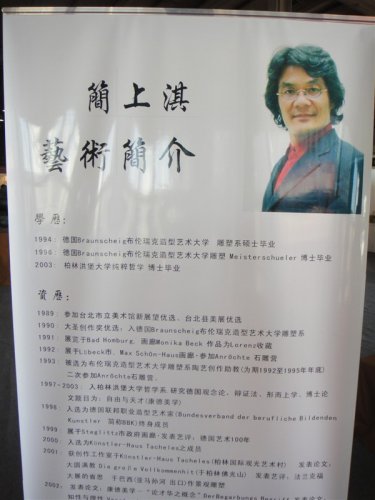 簡上淇
藝術簡介
學歷:
1994: 德国Braunscheig布伦瑞克造型艺术大学 雕塑系硕士毕业
1996: 德国Braunscheig布伦瑞克造型艺术大学雕塑 Meisterschueler 博士毕业
2003: 柏林洪堡大学纯粹哲学 博士毕业
資歷:
1989: 参加台北市立美术馆新展望优选、台北县美展优选
1990: 大圣创作奖优选; 入德国Braunscheig布伦瑞克造型艺术大学雕塑系
1991: 展览于Bad Homburg. 画廊Monika Beck 作品为Lorenz收藏
1992: 展于Lübeck市、Max Schön-Haus画廊·参加Anröchte 石雕营
1993: 被选为布伦瑞克造型艺术大学雕塑系陶艺创作助教(为期1992至1995年年底)
二次参加Anröchte石雕营.
1997-2003: 入柏林洪堡大学哲学系.研究德国观念论、辩证法、形而上学、博士论
文题目为: 自由与天才(康德美学)
1998: 入选为德国联邦职业造型艺术家(Bundesverband der berufliche Bildenden
Künstler 简称BBK)终身成员
1999: 展于Steglitz市政府画廊·发表艺评: 德国艺术100年
2000: 入选为Künstler-Haus Tacheles之成员
2001: 获创作工作室于Künstler-Haus Tacheles(柏林国际观光艺术村) 发表论文:
大圆满教 Die große Vollkommenhit(于柏林佛光山) 发表艺评: 法兰克福
大展的省思
2002: 发表论文: 康德美学--"论才华之概念"